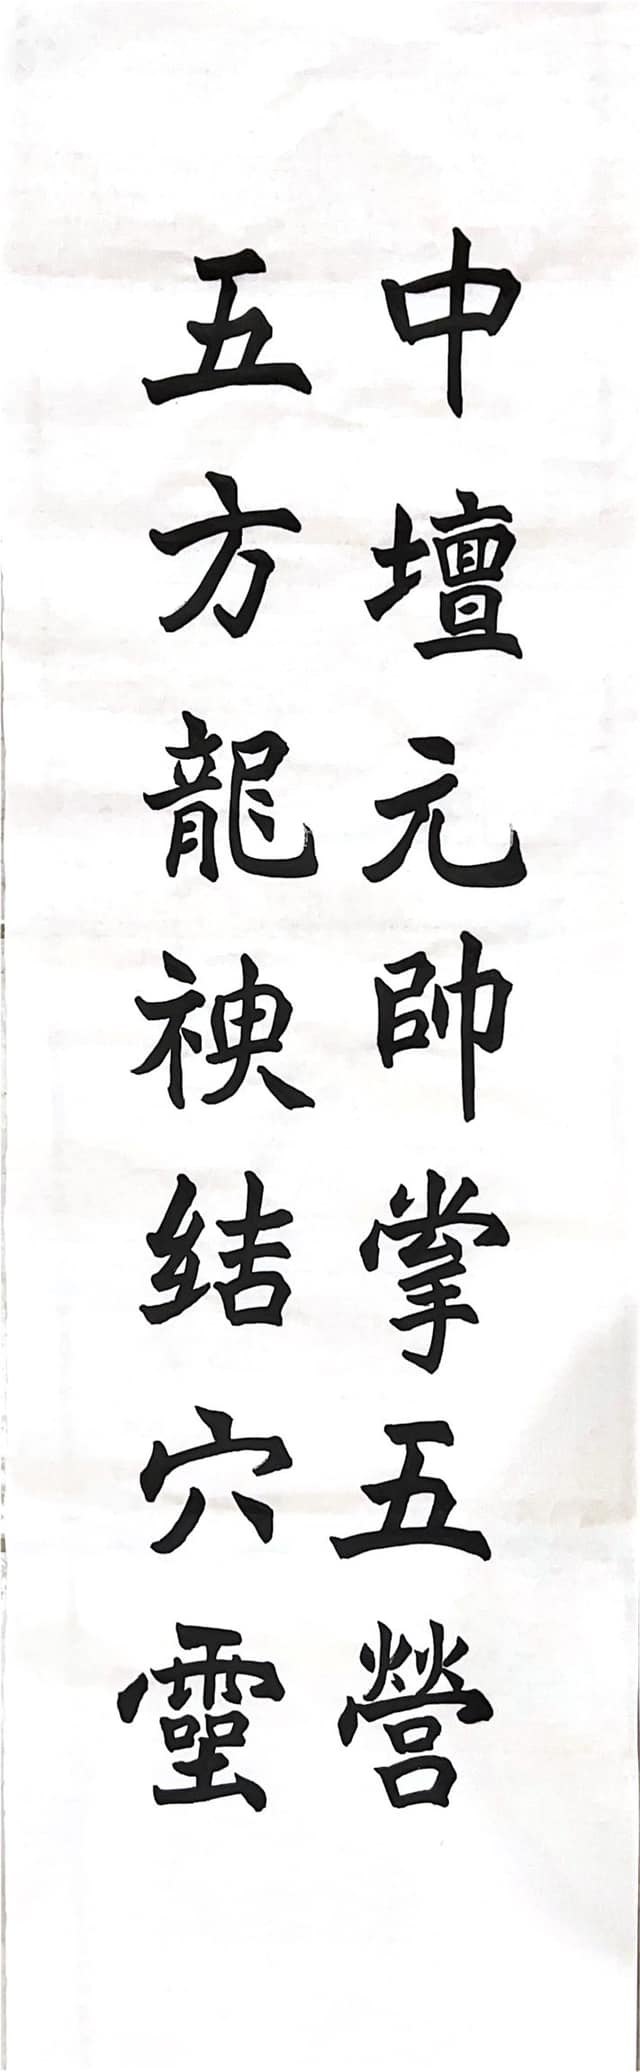 中壇元帥掌五營
五方龍神结穴靈